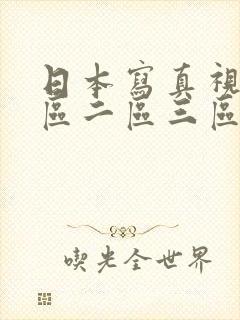 日本寫真視
區二區三區
喫光全世界